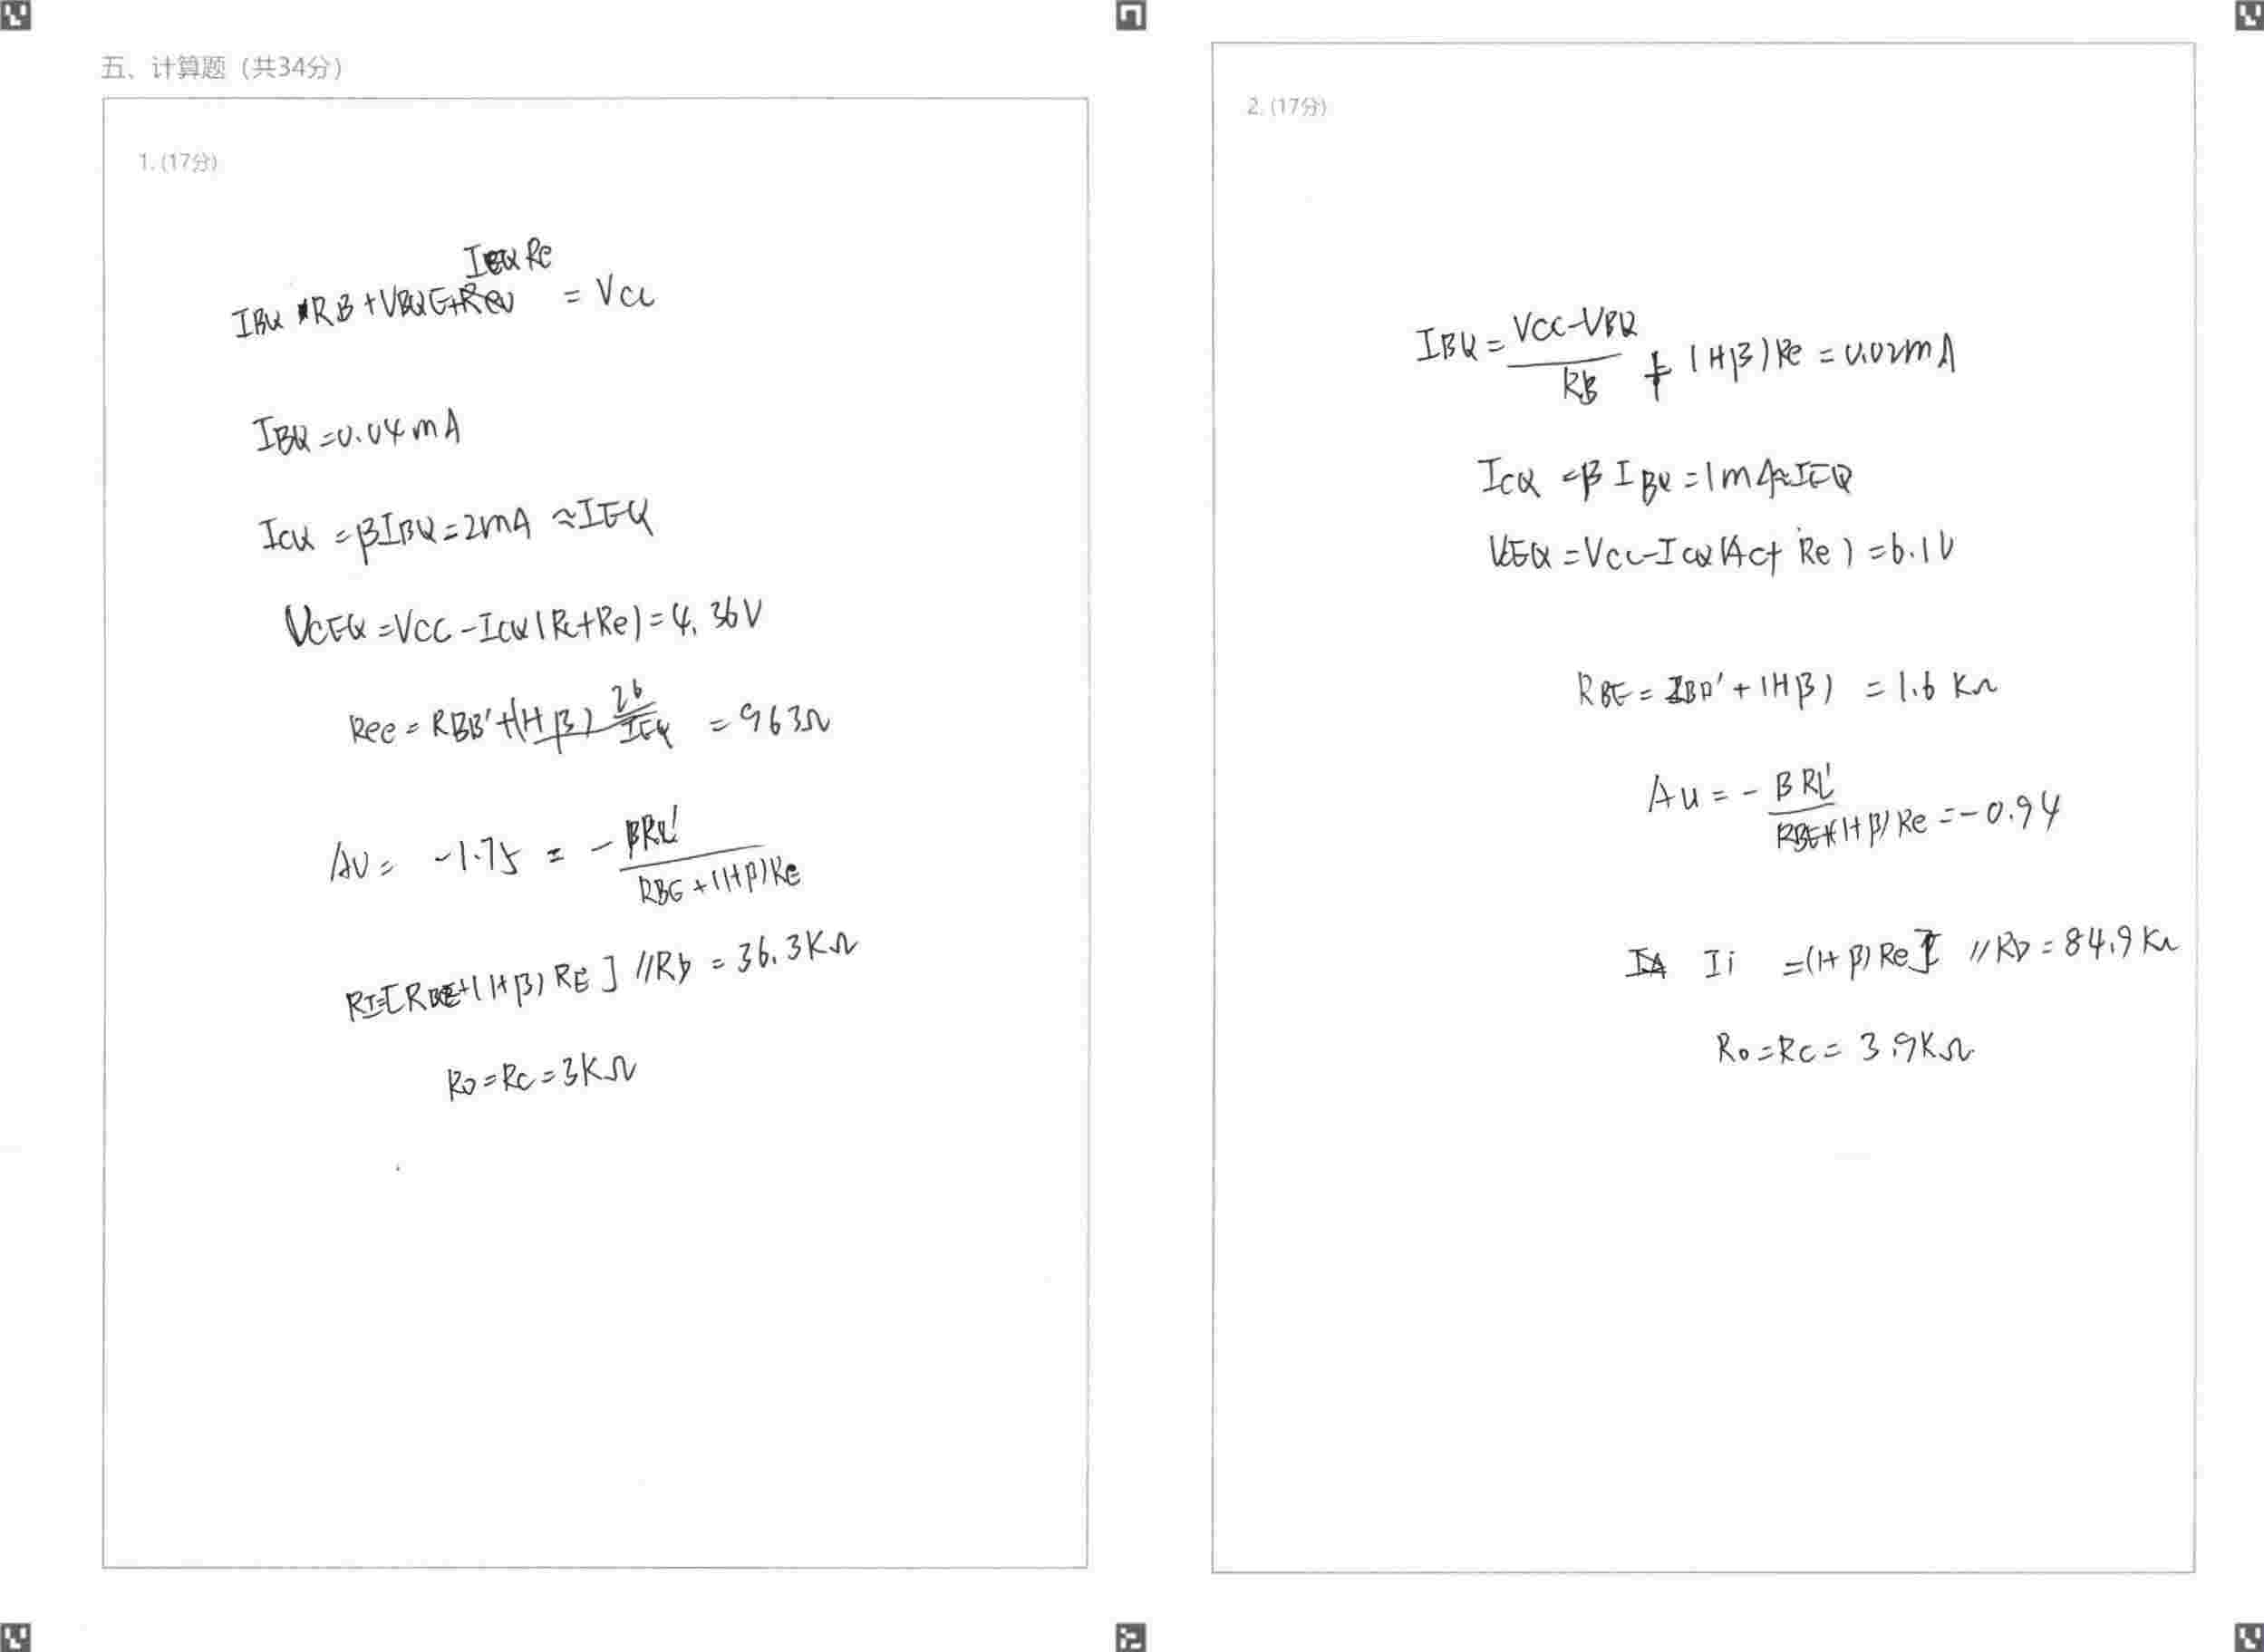 五、计算题（共34分）
1. (17分)
IEQ Re
IBQ RB + VBQE+ = VCC
IBQ = 0.04mA
ICQ = βIBQ = 2mA ≈ IEQ
VCEQ = VCC - ICQ(Rc+Re) = 4.36V
Ree = RBB' + (1+β) 26/IEQ = 963Ω
AU = -1.75 = - βRL' / RBE + (1+β)Re
RI=[RBE+(1+β) RE ] // Rb = 36.3KΩ
Ro = Rc = 3KΩ
2. (17分)
IBQ = VCC-VBQ / RB + (1+β)Re = 0.02mA
ICQ = β IBQ = 1mA ≈ IEQ
VCEQ = VCC - ICQ(Rc+ Re ) = 6.1V
RBE = RBB' + (1+β) = 1.6 KΩ
Au = - βRL' / RBE+(1+β)Re = -0.94
Ii = (1+β)Re] // Rb = 84.9KΩ
Ro = Rc = 3.9KΩ